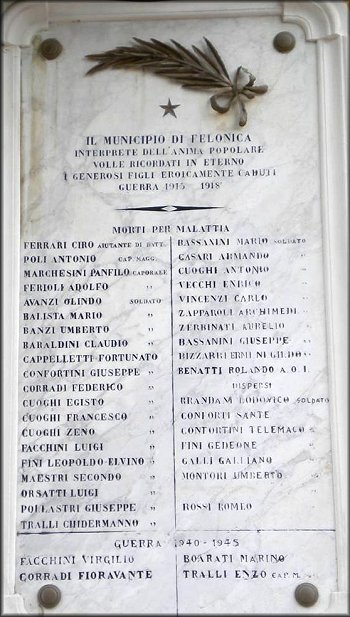 IL MUNICIPIO DI FELONICA
INTERPRETE DELL'ANIMA POPOLARE
VOLLE RICORDATI IN ETERNO
I GENEROSI FIGLI EROICAMENTE CADUTI
GUERRA 1915 - 1918
MORTI PER MALATTIA
FERRARI CIRO AIUTANTE DI BATT.
POLI ANTONIO CAP. MAGG.
MARCHESINI PANFILO CAPORALE
FERIOLI ADOLFO "
AVANZI OLINDO SOLDATO
BALISTA MARIO "
BANZI UMBERTO "
BARALDINI CLAUDIO "
CAPPELLETTI FORTUNATO
CONFORTINI GIUSEPPE "
CORRADI FEDERICO "
CUOGHI EGISTO "
CUOGHI FRANCESCO "
CUOGHI ZENO "
FACCHINI LUIGI "
FINI LEOPOLDO-ELVINO "
MAESTRI SECONDO "
ORSATTI LUIGI "
POLLASTRI GIUSEPPE "
TRALLI CHIDERMANNO "
BASSANINI MARIO SOLDATO
CASARI ARMANDO "
CUOGHI ANTONIO "
VECCHI ENRICO "
VINCENZI CARLO "
ZAPPAROLI ARCHIMEDE "
ZERBINATI AURELIO "
BASSANINI GIUSEPPE "
BIZZARRI ERMENEGILDO "
BENATTI ROLANDO A.O.I.
DISPERSI
BRANDAM LODOVICO SOLDATO
CONFORTI SANTE
CONFORTINI TELEMACO "
FINI GEDEONE "
GALLI GALLIANO "
MONTORI UMBERTO "
ROSSI ROMEO "
GUERRA 1940 - 1945
FACCHINI VIRGILIO
CORRADI FIORAVANTE
BOARATI MARINO
TRALLI ENZO CAP. M.